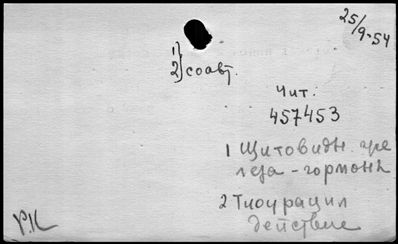 25/9-54
1}
2} соавт.
Чит.
457453
1 Щитовидн. же
леза - гормоны
2 Тиоурацил
действие
Р.К